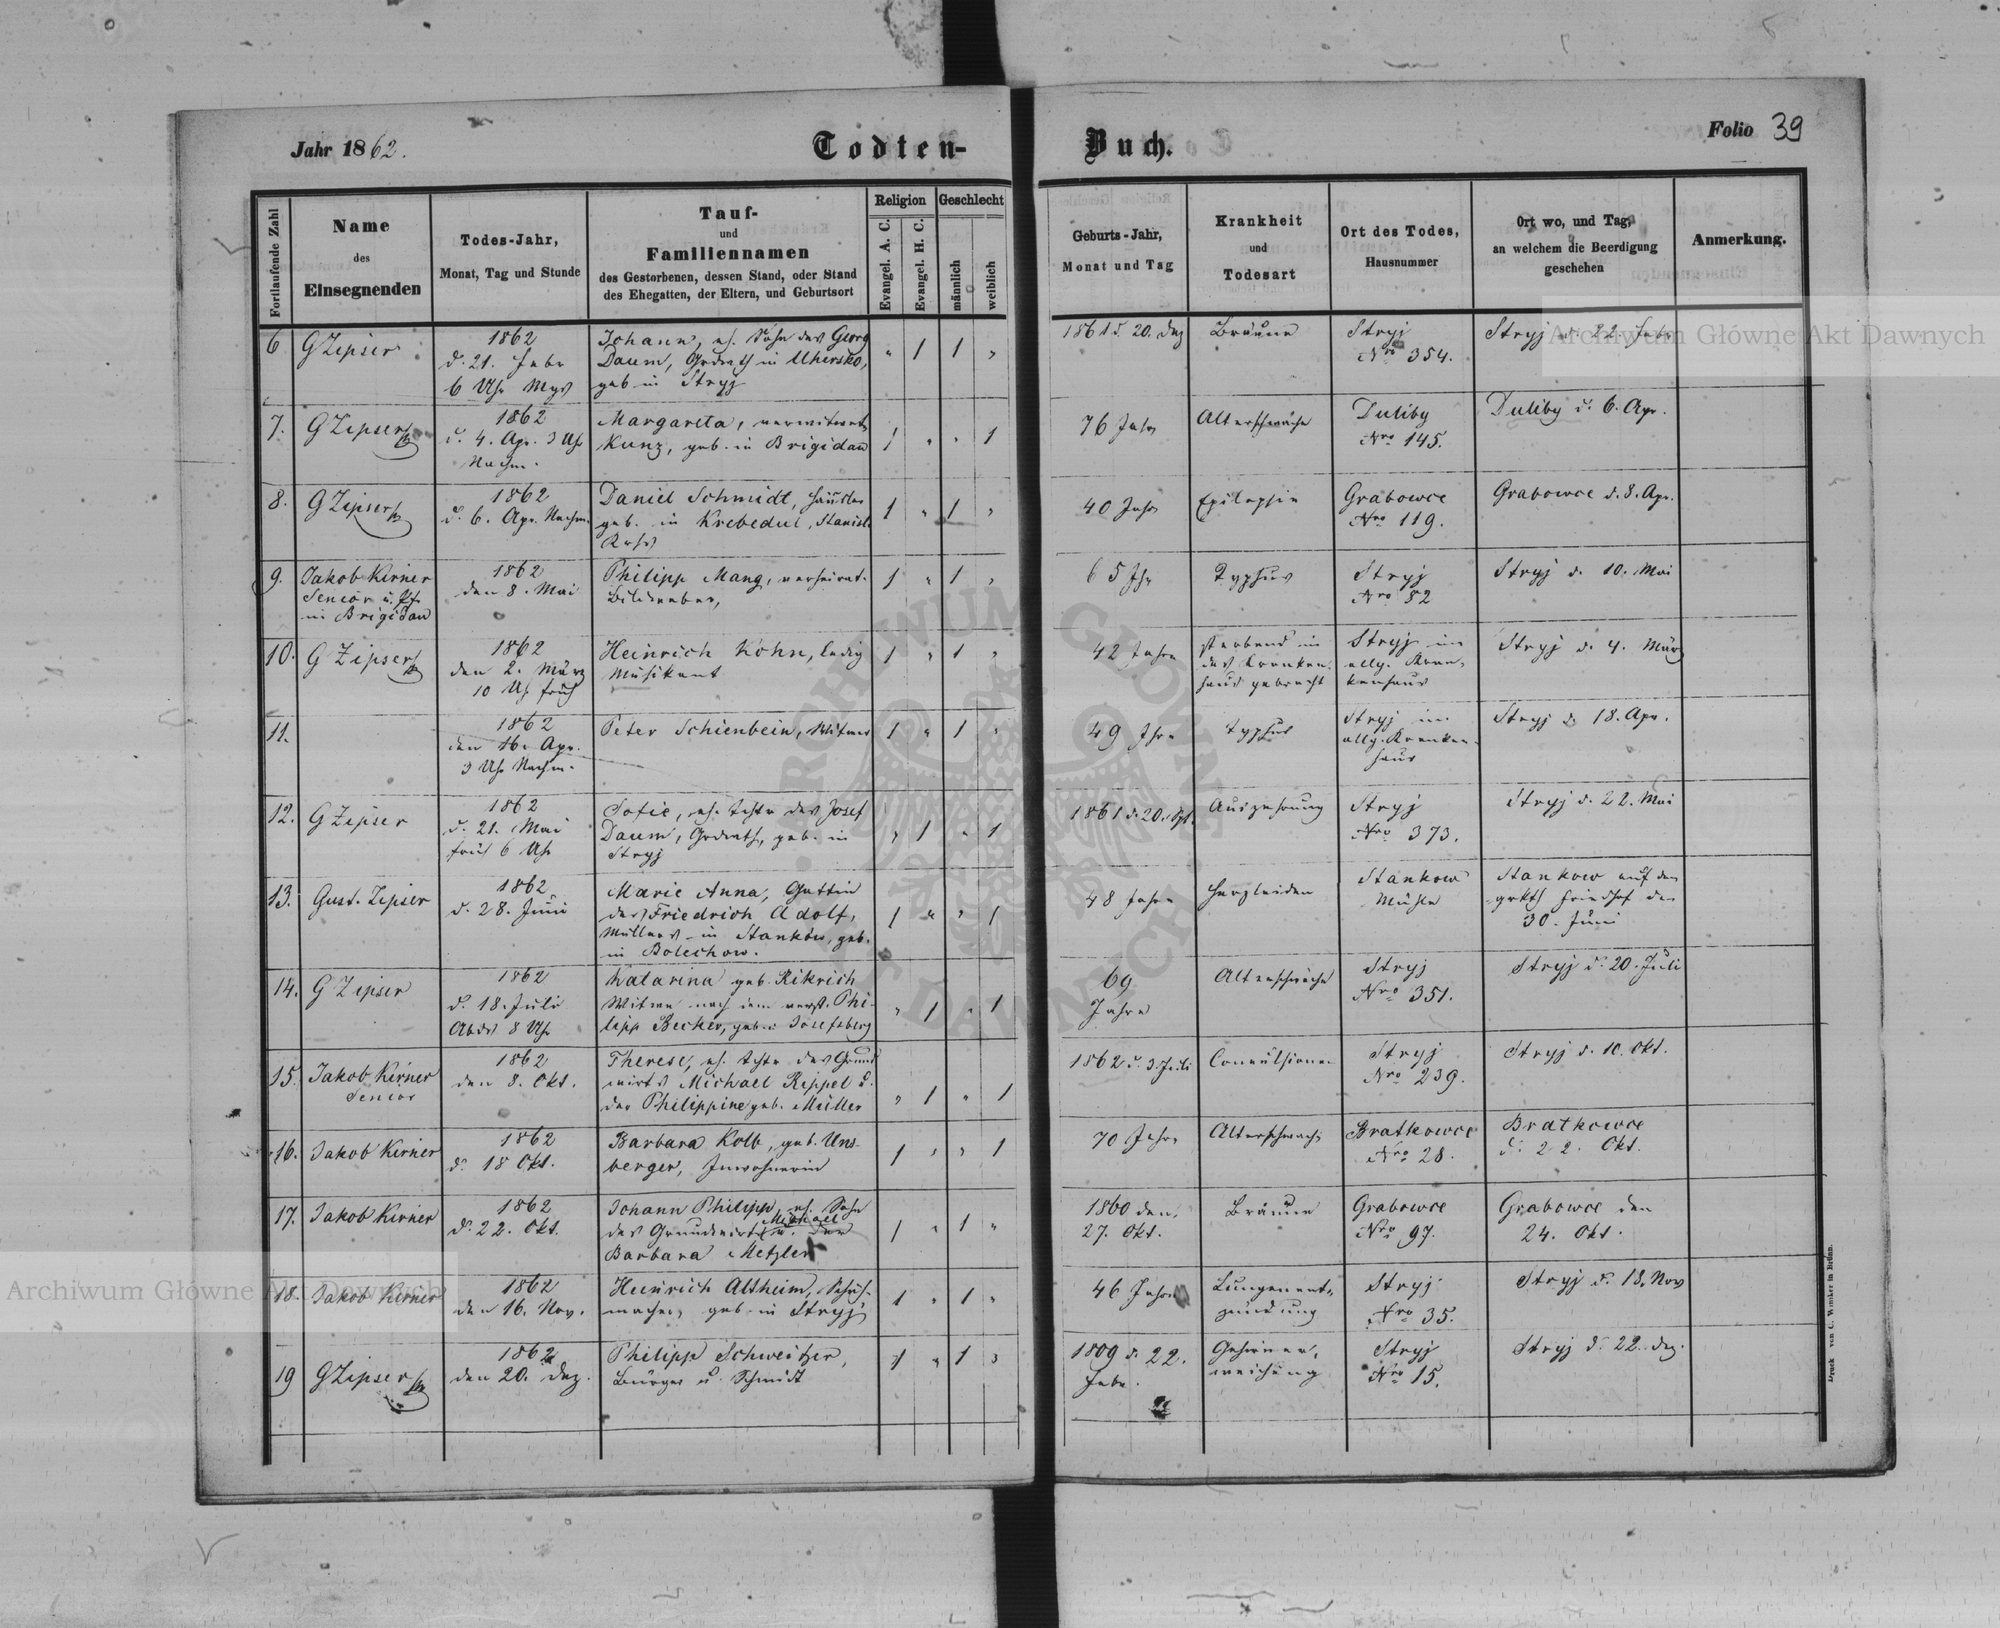 Jahr 1862.
Todten-Buch.
Folio 39
Fortlaufende Zahl
Name
des
Einsegnenden
Todes-Jahr,
Monat, Tag und Stunde
Tauf-
und
Familiennamen
des Gestorbenen, dessen Stand, oder Stand
des Ehegatten, der Eltern, und Geburtsort
Religion
Evangel. A. C.
Evangel. H. C.
Geschlecht
männlich
weiblich
Geburts-Jahr,
Monat und Tag
Krankheit
und
Todesart
Ort des Todes,
Hausnummer
Ort wo, und Tag,
an welchem die Beerdigung
geschehen
Anmerkung.
6 GZipser
1862
d. 21. Febr
6 Uhr Mgs
Johann, eh. Sohn des Georg
Daum, in Uhersko,
geb in Stryj
" 1 1 "
1861 d. 20. Dez
Bräune
Stryj
Nro 354.
Stryj d. 22. Febr
7. GZipser
1862
d. 4. Apr. 3 Uhr
Nachm.
Margareta, verwitwete
Kunz, geb. in Brigidau
1 " " 1
76 Jahr
Altersschwäche
Duliby
Nro 145.
Duliby d. 6. Apr.
8. GZipser
1862
d. 6. Apr. Nachm.
Daniel Schmidt, Häusler
geb. in Krebedul, Stanisl.
1 " 1 "
40 Jahr
Epilepsie
Grabowce
Nro 119.
Grabowce d. 8. Apr.
9. Jakob Kirner
Senior u. Pf.
in Brigidau
1862
den 8. Mai
Philipp Mang, verheirat.
1 " 1 "
65 Jhr
Typhus
Stryj
Nro 52
Stryj d. 10. Mai
10. G Zipser
1862
den 2. März
10 Uhr früh
Heinrich Kohn, ledig
Musikant
1 " 1 "
42 Jahre
sterbend in
das Kranken-
haus gebracht
Stryj im
allg. Kran-
kenhaus
Stryj d. 4. März
11.
1862
den 16. Apr.
3 Uhr Nachm.
Peter Schienbein, Witwer
1 " 1 "
49 Jhre
Typhus
Stryj im
allg. Kranken-
haus
Stryj d. 18. Apr.
12. G Zipser
1862
d. 21. Mai
früh 6 Uhr
Sofie, eh. Tchtr des Josef
Daum, geb. in
Stryj
" 1 " 1
1861 d. 20. Spt.
Auszehrung
Stryj
Nro 373.
Stryj d. 22. Mai
13. Gust. Zipser
1862
d. 28. Juni
Marie Anna, Gattin
des Friedrich Adolf,
Müllers in Stankow, geb.
in Bolechow.
1 " " 1
48 Jahre
Herzleiden
Stankow
Mühle
Stankow auf dem
grkth Friedhof den
30. Juni
14. G Zipser
1862
d. 18. Juli
Abds 8 Uhr
Katarina geb. Rikrich
Witwe nach dem verst. Phi-
lipp Becker, geb. i Josefsberg
" 1 " 1
69
Jahre
Altersschwäche
Stryj
Nro 351.
Stryj d. 20. Juli
15. Jakob Kirner
Senior
1862
den 8. Okt.
Therese, eh. Tchtr des Grund
wirts Michael Rippel u.
der Philippine geb. Müller
" 1 " 1
1862 d. 3. Juli
Convulsionen
Stryj
Nro 239.
Stryj d. 10. Okt.
16. Jakob Kirner
1862
d. 18 Okt.
Barbara Kolb, geb. Uns-
berger, Inwohnerin
1 " " 1
70 Jahre
Altersschwäche
Bratkowce
Nro 28.
Bratkowce
d. 22. Okt.
17. Jakob Kirner
1862
d. 22. Okt.
Johann Philipp, eh. Sohn
des Grundwirts Michael u. der
Barbara Metzler
1 " 1 "
1860 den
27. Okt.
Bräune
Grabowce
Nro 97.
Grabowce den
24. Okt.
18. Jakob Kirner
1862
den 16. Nov.
Heinrich Altheim, Schuh-
macher, geb. in Stryj
1 " 1 "
46 Jahre
Lungenent-
zündung
Stryj
Nro 35.
Stryj d. 18. Nov
19 GZipser
1862
den 20. Dez.
Philipp Schweitzer,
Bürger u. Schmidt
1 " 1 "
1809 d. 22.
Febr.
Gehirner-
weichung
Stryj
Nro 15.
Stryj d. 22. Dez.
Druck von C. Winiker in Brünn.
Archiwum Główne Akt Dawnych
Archiwum Główne Akt Dawnych
ARCHIWUM GŁÓWNE AKT DAWNYCH